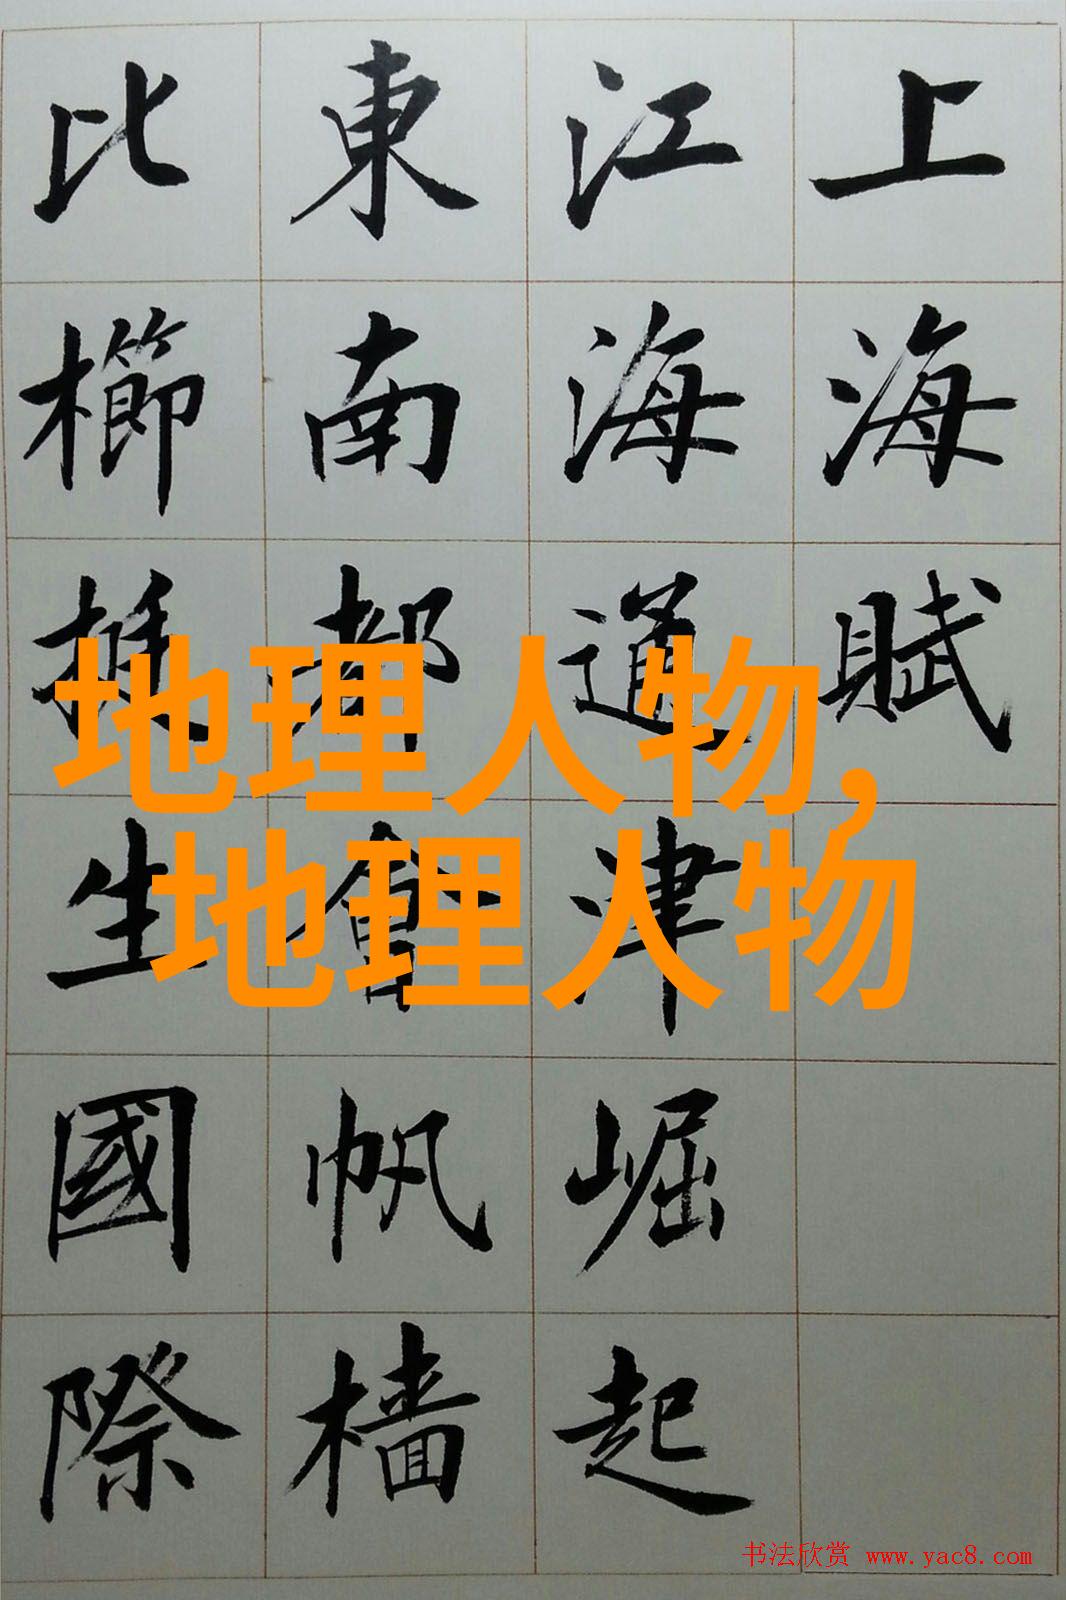 上海賦
江海通津崛起
東南都會帆樯
比櫛挺生國際
地理人物,
地理人物
书法欣赏 www.yac8.com